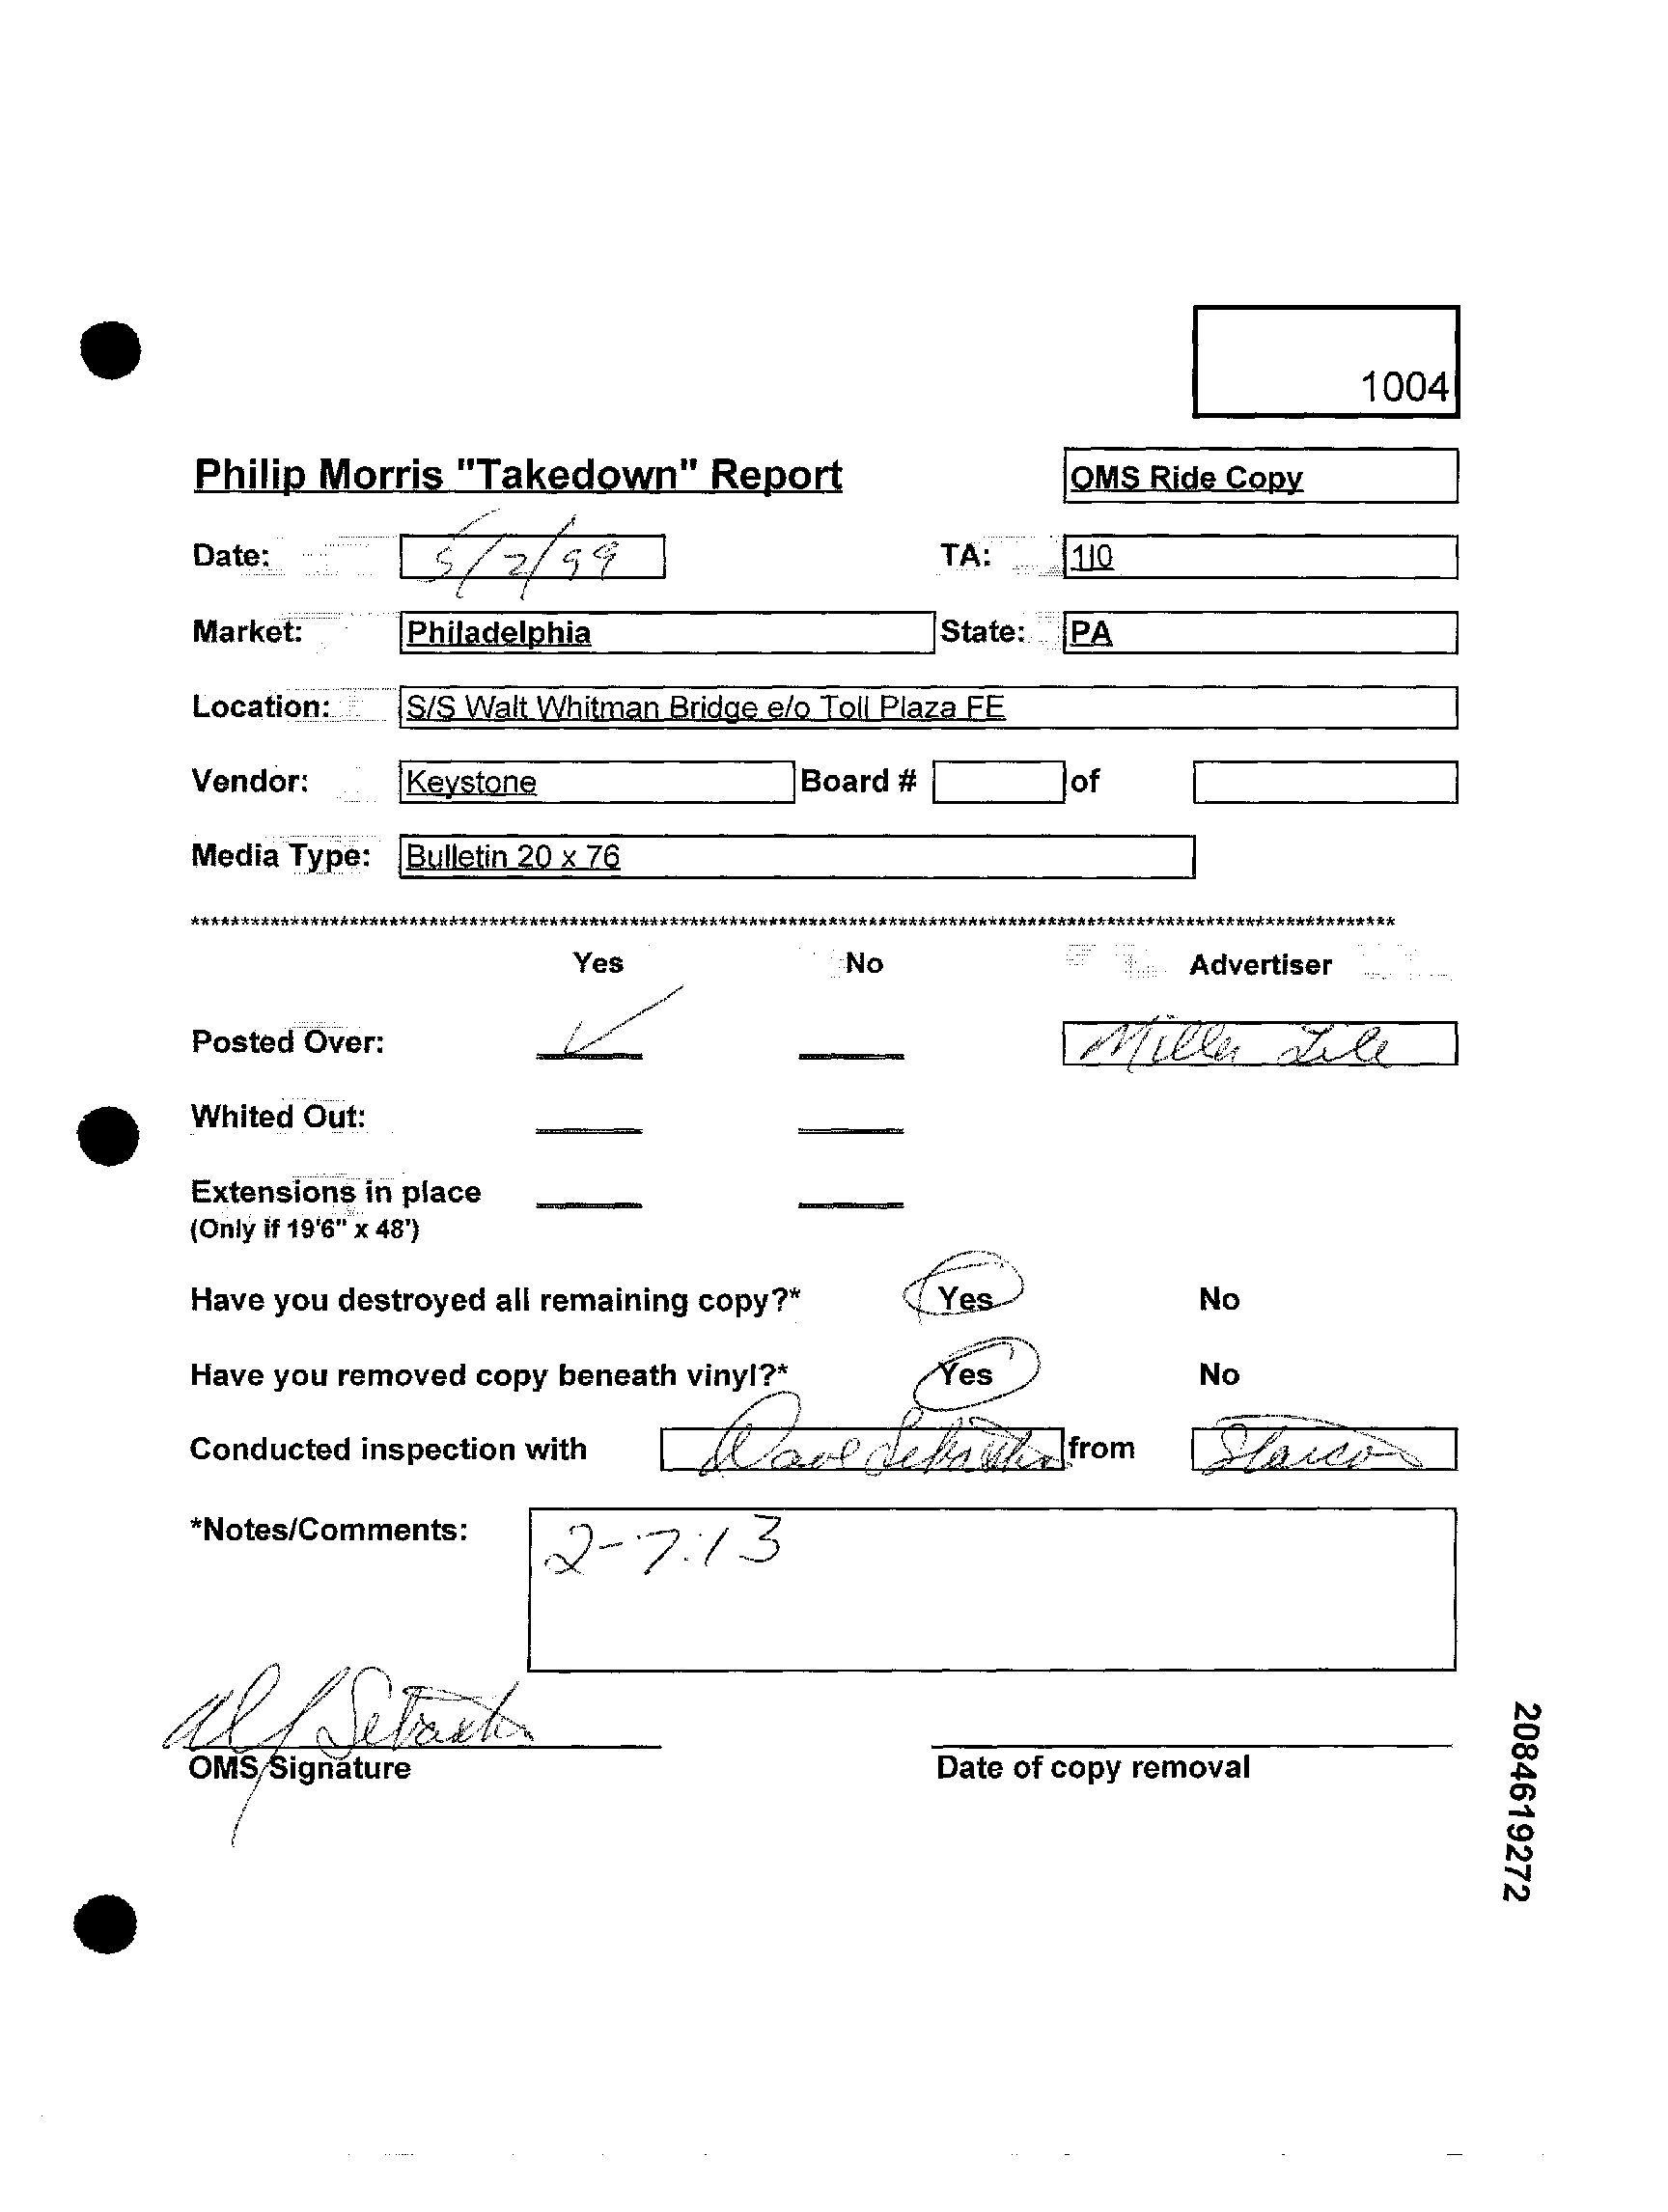 1004
Philip Morris "Takedown" Report
OMS Ride Copy
Date: 5/2/99 TA: 110
Market: Philadelphia State: PA
Location: S/S Walt Whitman Bridge e/o Toll Plaza FE
Vendor: Keystone Board # of
Media Type: Bulletin 20 x 76
****************************************************************************************************************************
Yes No Advertiser
Posted Over: Miller Lite
Whited Out:
Extensions in place
(Only if 19'6" x 48')
Have you destroyed all remaining copy?* Yes No
Have you removed copy beneath vinyl?* Yes No
Conducted inspection with Dave from
*Notes/Comments: 2-7:13
OMS Signature Date of copy removal
2084619272